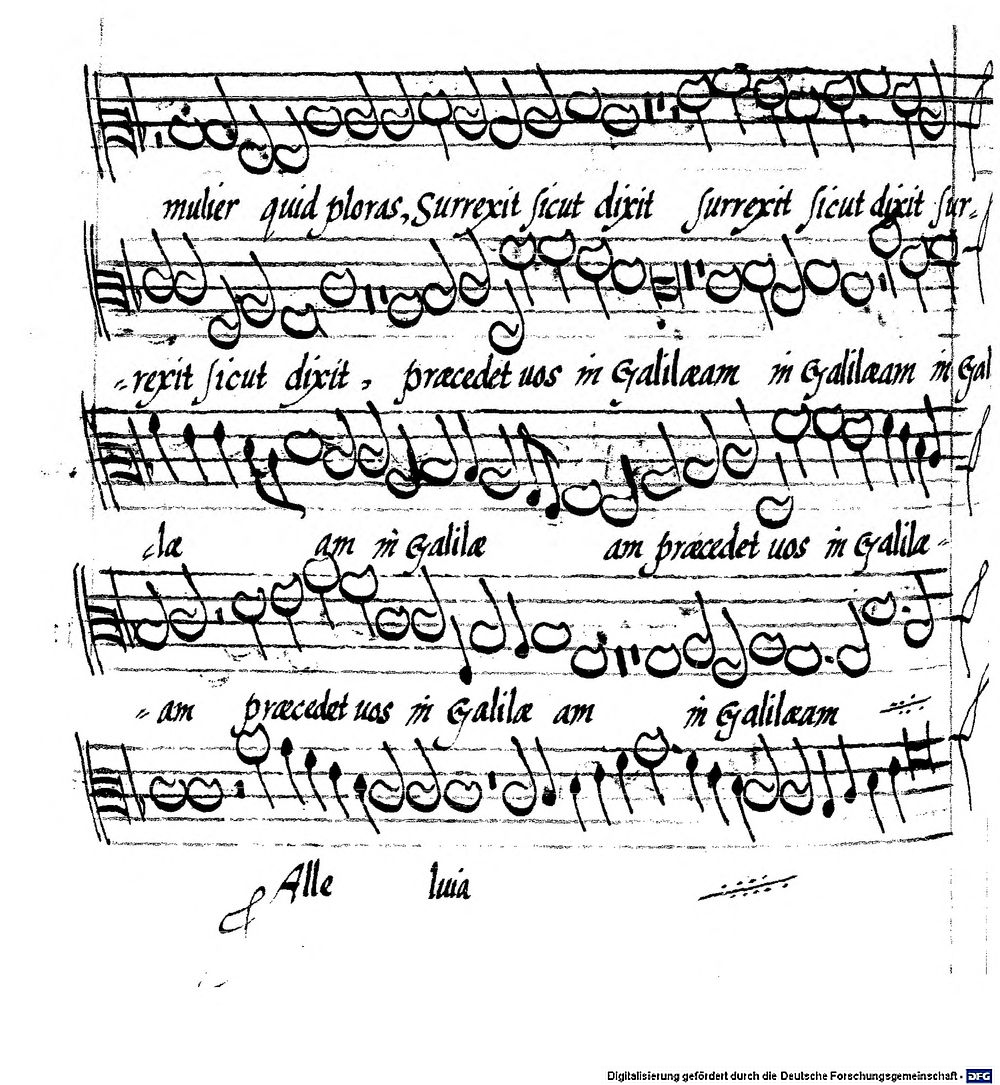 mulier quid ploras, Surrexit sicut dixit surrexit sicut dixit sur-
-rexit sicut dixit, præcedet uos in Galilæam in Galilæam in Gal
-læ am in Galilæ am præcedet uos in Galilæ-
-am præcedet uos in Galilæ am in Galilæam
Alle luia
Digitalisierung gefördert durch die Deutsche Forschungsgemeinschaft - DFG